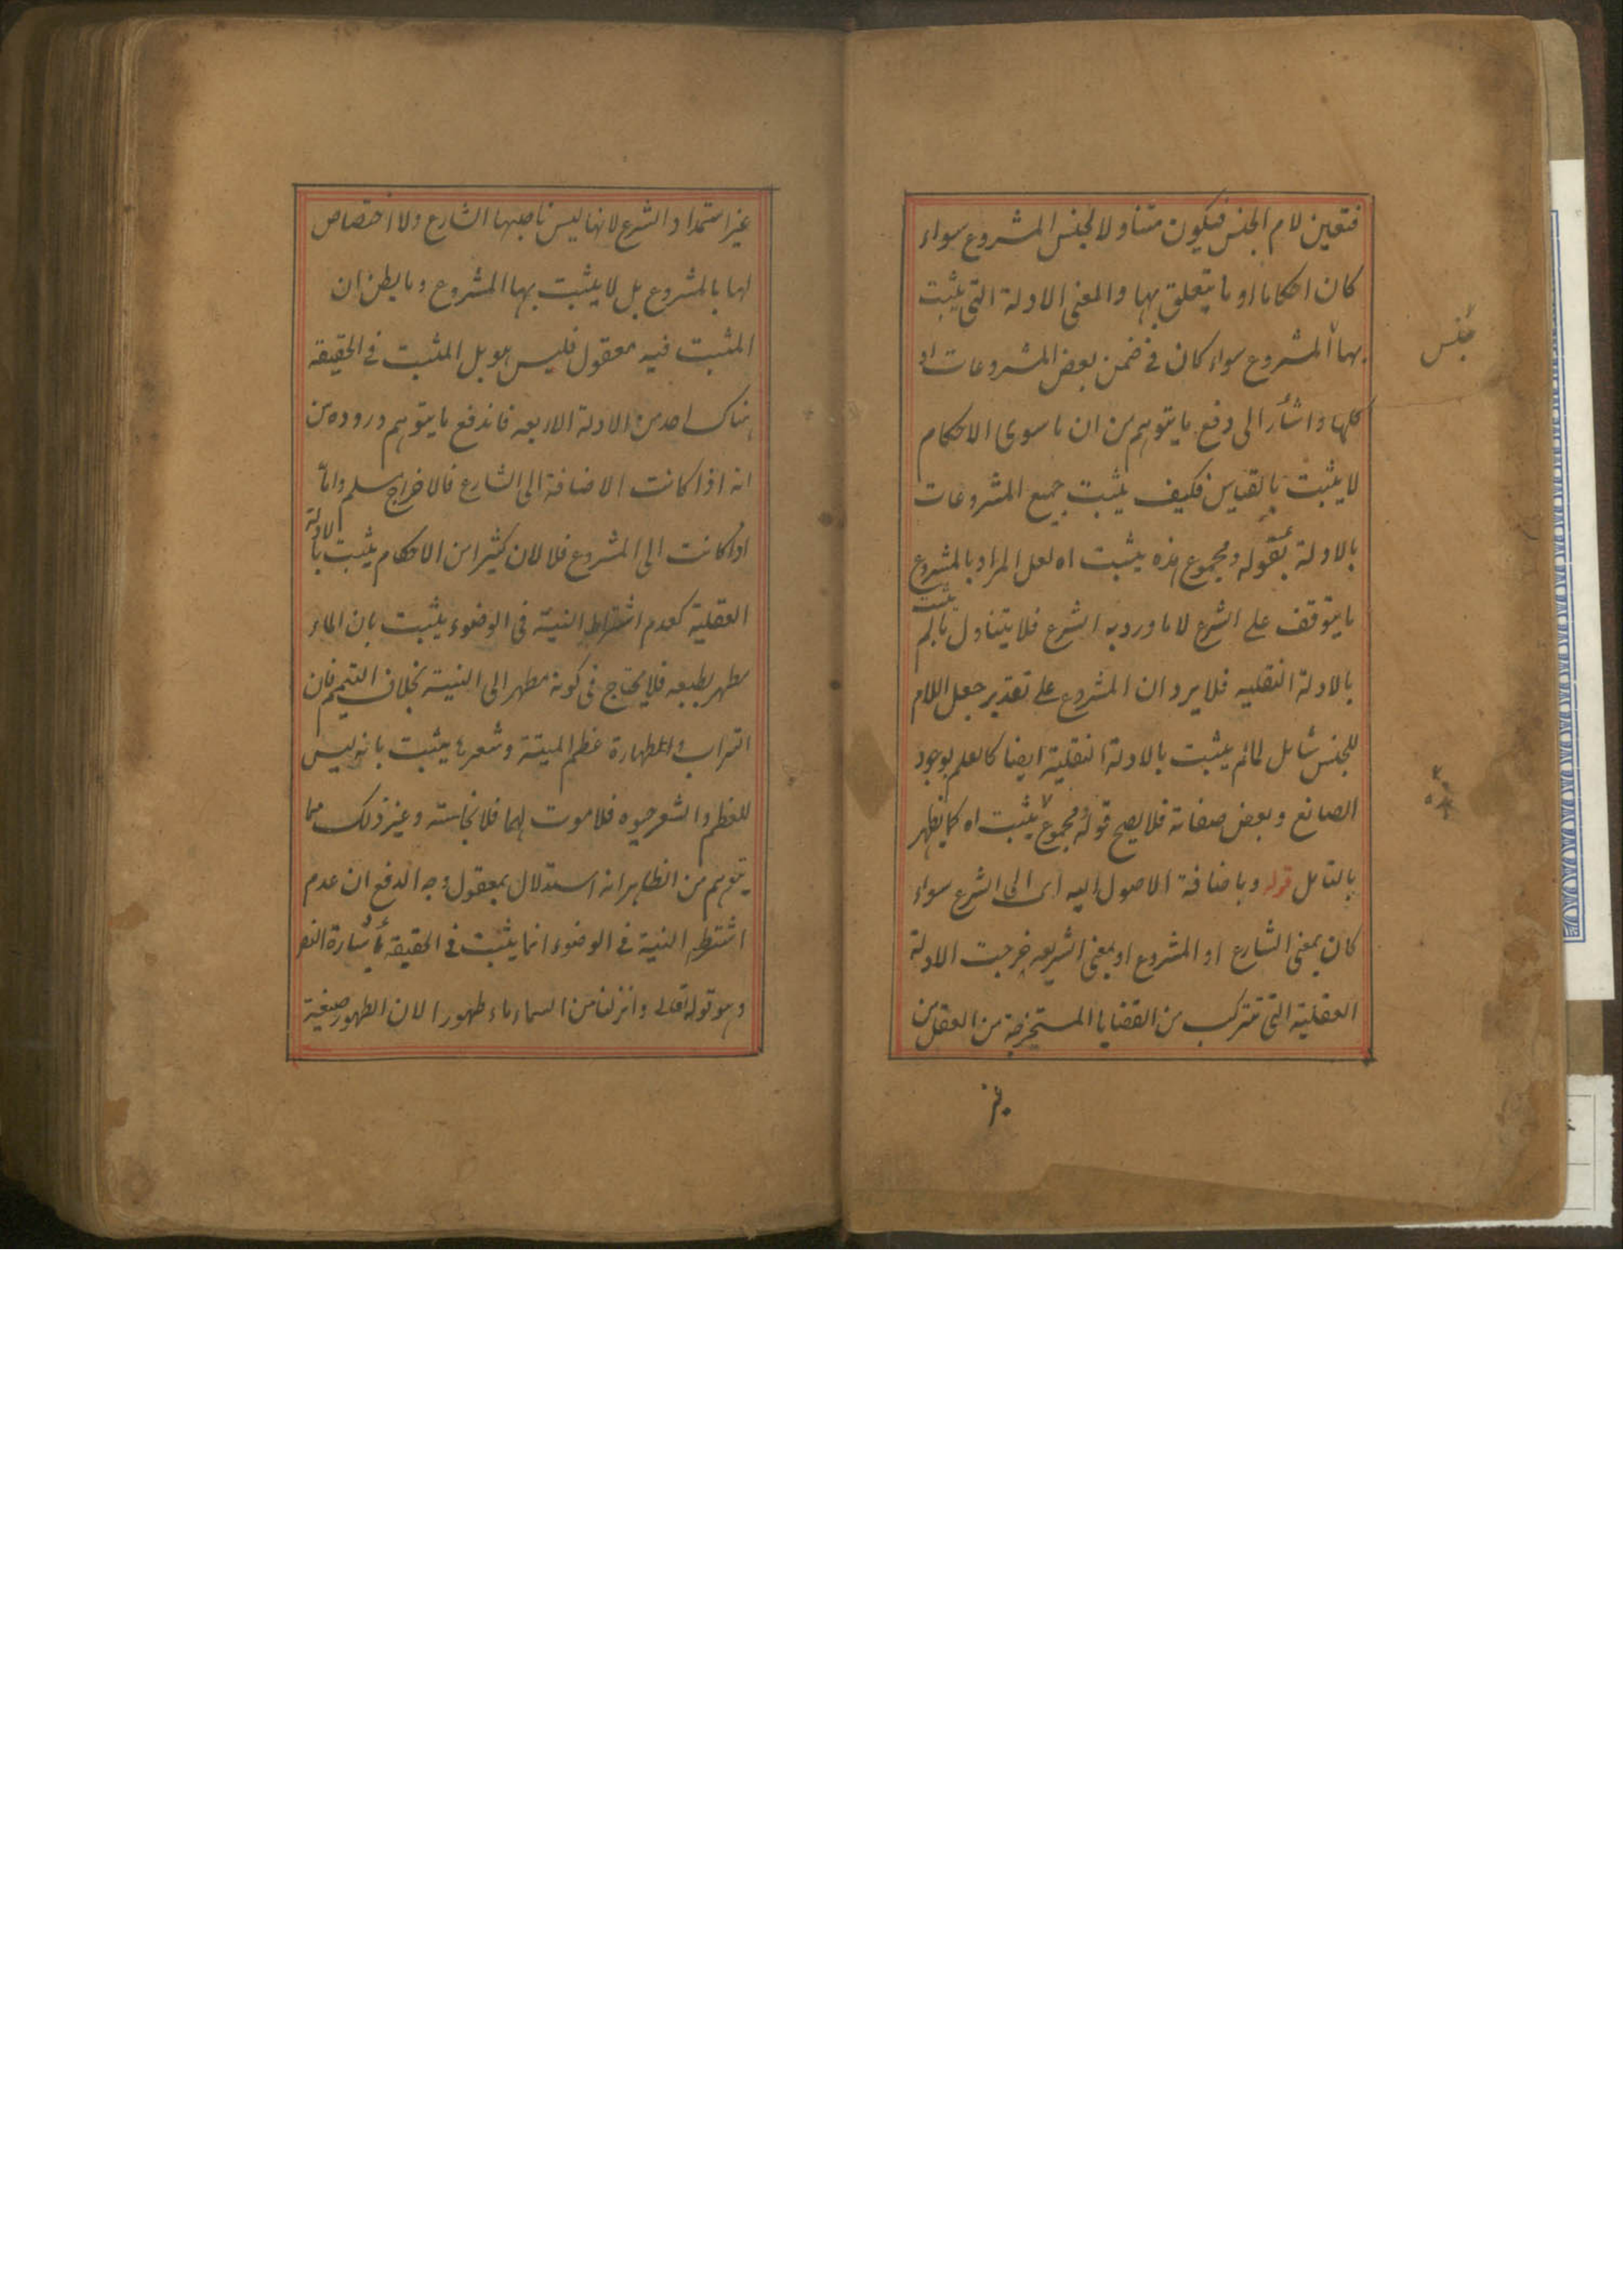 فتعين لام الجنس فيكون متناولا لجنس المشروع سواء
كان احكاما او ما يتعلق بها والمعنى الادلة التى يثبت
بها المشروع سواء كان فى ضمن بعض المشروعات او
جنس
كلها واشار الى دفع ما يتوهم من ان ما سوى الاحكام
لا يثبت بالقياس فكيف يثبت جميع المشروعات
بالادلة بقوله ومجموع هذه يثبت اه لعل المراد بالمشروع
ما يتوقف على الشرع لا ما ورد به الشرع فلا يتناول ما لم يثبت
بالادلة النقليه فلا يرد ان المشروع على تقدير جعل اللام
للجنس شامل لما لم يثبت بالادلة النقلية ايضا كالعلم بوجود
الصانع وبعض صفاته فلا يصح قوله ومجموع يثبت اه كما يظهر
بالتامل قوله وباضافة الاصول اليه اى الى الشرع سواء
كان بمعنى الشارع او المشروع او بمعنى الشريعه خرجت الادلة
العقلية التى تتركب من القضايا المستخرجة من العقل من
غير
غير استمداد الشرع لانها ليس ناصبها الشارع ولا اختصاص
لها بالمشروع بل لا يثبت بها المشروع وما يظن ان
المثبت فيه معقول فليس هو بل المثبت فى الحقيقه
هناك احد من الادلة الاربعه فاندفع ما يتوهم وروده من
انه اذا كانت الاضافة الى الشارع فالاخراج مسلم واما
اذا كانت الى المشروع فلا لان كثيرا من الاحكام يثبت بالادلة
العقلية كعدم اشتراط النية فى الوضوء يثبت بان الماء
مطهر بطبعه فلا يحتاج فى كونه مطهر الى النية بخلاف التيمم فان
التراب وطهارة عظم الميتة وشعرها يثبت بانه ليس
للعظم والشعر حيوه فلا موت لهما فلا نجاسته وغير ذلك مما
يتوهم من الظاهر انه استدلال بمعقول وجه الدفع ان عدم
اشتراط النية فى الوضوء انما يثبت فى الحقيقه باشارة النص
وهو قوله تعالى وانزلنا من السماء ماء طهورا لان الطهور صيغة